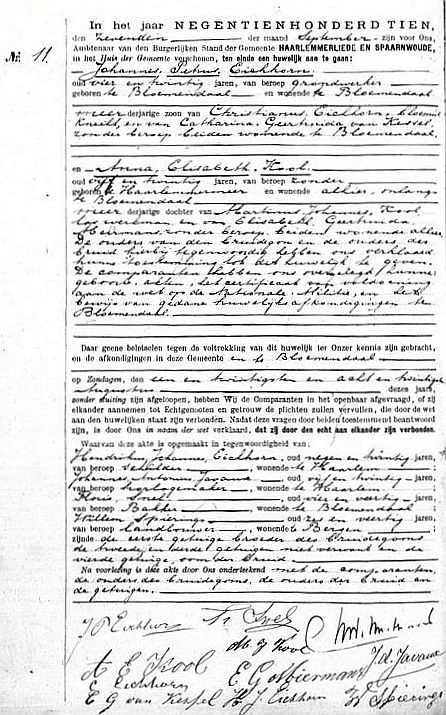 In het jaar NEGENTIENHONDERD TIEN,
den zevenden der maand September zijn voor Ons,
Ambtenaar van den Burgerlijken Stand der Gemeente HAARLEMMERLIEDE EN SPAARNWOUDE,
No. 11. in het Huis der Gemeente verschenen, ten einde een huwelijk aan te gaan:
Johannes, Petrus, Eickhorn
oud vier en twintig jaren, van beroep grondwerker
geboren te Bloemendaal en wonende te Bloemendaal
meerderjarige zoon van Christianus Eickhorn, bloemist
knecht, en van Catharina, Geertruida van Kessel,
zonder beroep beiden wonende te Bloemendaal
en Anna, Elisabeth, Kool
oud vijf en twintig jaren, van beroep zonder
geboren te Haarlemmermeer en wonende alhier, onlangs
te Bloemendaal
meerderjarige dochter van Martinus, Johannes, Kool,
los werkman en van Elisabeth, Geertruida,
zonder beroep, beiden wonende alhier
De ouders van den Bruidegom en de ouders der
Bruid hierbij tegenwoordig hebben ons verklaard
hunne toestemming tot dit huwelijk te geven
De comparanten hebben ons overgelegd hunne
geboorte akten, het certificaat van voldoening
aan de wet op de Nationale Militie, en het
bewijs van gedane huwelijksafkondigingen te
Bloemendaal.
Daar geene beletselen tegen de voltrekking van dit huwelijk ter Onzer kennis zijn gebracht,
en de afkondigingen in deze Gemeente en te Bloemendaal
op Zondagen, den een en twintigsten en acht en twintigsten
Augustus dezes jaars,
zonder stuiting zijn afgeloopen, hebben Wij de Comparanten in het openbaar afgevraagd, of zij
elkander aannemen tot Echtgenooten en getrouw de plichten zullen vervullen, die door de wet
aan den huwelijken staat zijn verbonden. Nadat deze vragen door beiden toestemmend beantwoord
zijn, is door Ons in naam der wet verklaard, dat zij door den echt aan elkander zijn verbonden.
Waarvan deze akte is opgemaakt in tegenwoordigheid van:
Hendrikus, Johannes, Eickhorn, oud negen en twintig jaren,
van beroep schilder, wonende te Haarlem
Johannes, Antonius, oud vijf en twintig jaren,
van beroep horlogemaker, wonende te Haarlem
Floris, Snel oud vier en veertig jaren,
van beroep Bakker wonende te Bloemendaal
Willem Spierings oud zes en veertig jaren,
van beroep Landbouwer wonende te Bergen
zijnde de eerste getuige broeder des Bruidegoms
de tweede en derde getuigen niet verwant en de
vierde getuige, oom der Bruid
Na voorlezing is deze akte door Ons onderteekend met de comparanten,
de ouders des Bruidegoms, de ouders der Bruid en
de getuigen.
J P Eickhorn Fl Snel
M J Kool
A E Kool E G J A
C Eickhorn
C G van Kessel H J Eickhorn W Spierings